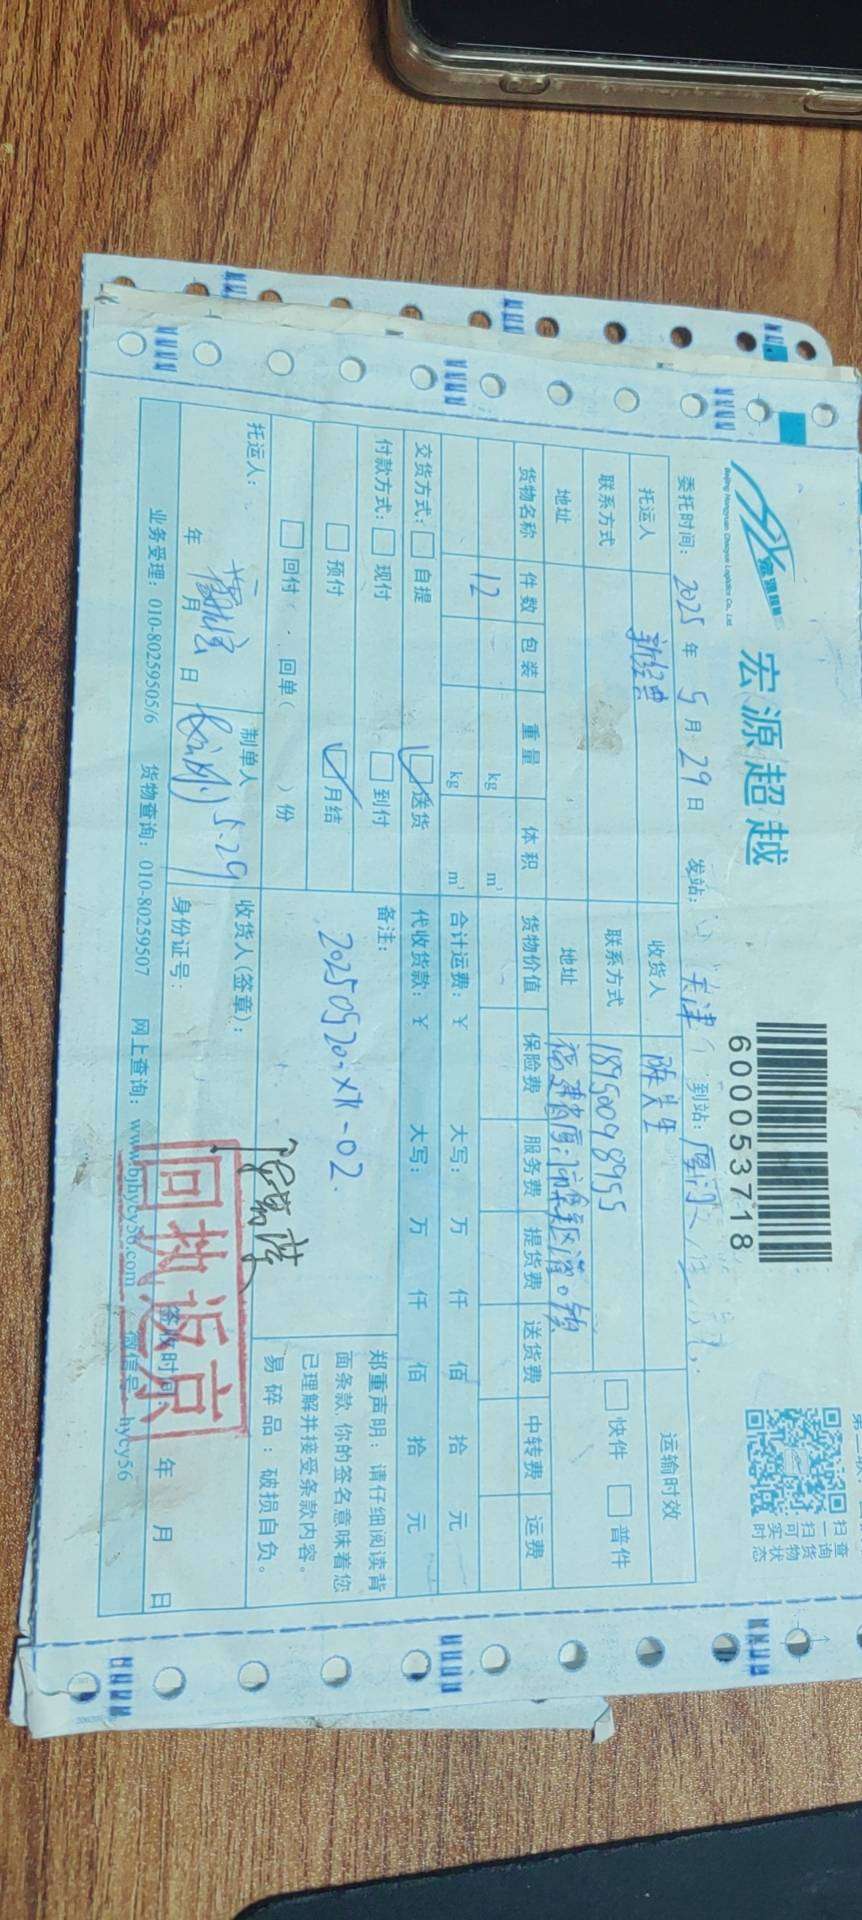 宏源超越
宏源超越
Beijing Hongyuan Chaoyue Logistics Co., Ltd.
600053718
扫一扫可实时
查询货物状态
委托时间: 2025 年 5 月 29 日 发站: 天津 到站: 厦门
托运人 新经典 收货人 陈先生 运输时效
联系方式 联系方式 18750098955 快件 普件
地址 地址 福建省厦门
货物名称 件数 包装 重量 体积 货物价值 保险费 服务费 提货费 送货费 中转费 运费
12 kg m³
kg m³ 合计运费: ¥ 大写: 万 仟 佰 拾 元
交货方式: 自提 送货 代收货款: ¥ 大写: 万 仟 佰 拾 元
付款方式: 现付 到付 备注:
预付 月结 20250520-XK-02.
回付 回单( )份
郑重声明: 请仔细阅读背
面条款,你的签名意味着您
已理解并接受条款内容。
易碎品: 破损自负。
托运人: 制单人 5.29 收货人(签章):
年 月 日 身份证号: 签收时间: 年 月 日
回执返京
业务受理: 010-80259505/6 货物查询: 010-80259507 网上查询: www.bjhycy56.com 微信号: hycy56